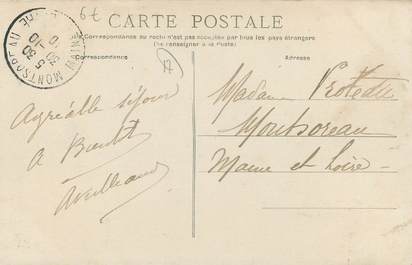 6€
CARTE POSTALE
La Correspondance au recto n'est pas acceptée par tous les pays étrangers
(Se renseigner à la Poste)
Correspondance
Adresse
MONTSOREAU
5-30
30-10
10
Agréable séjour
A Bientôt
Madame Proteau
Montsoreau
Maine et Loire